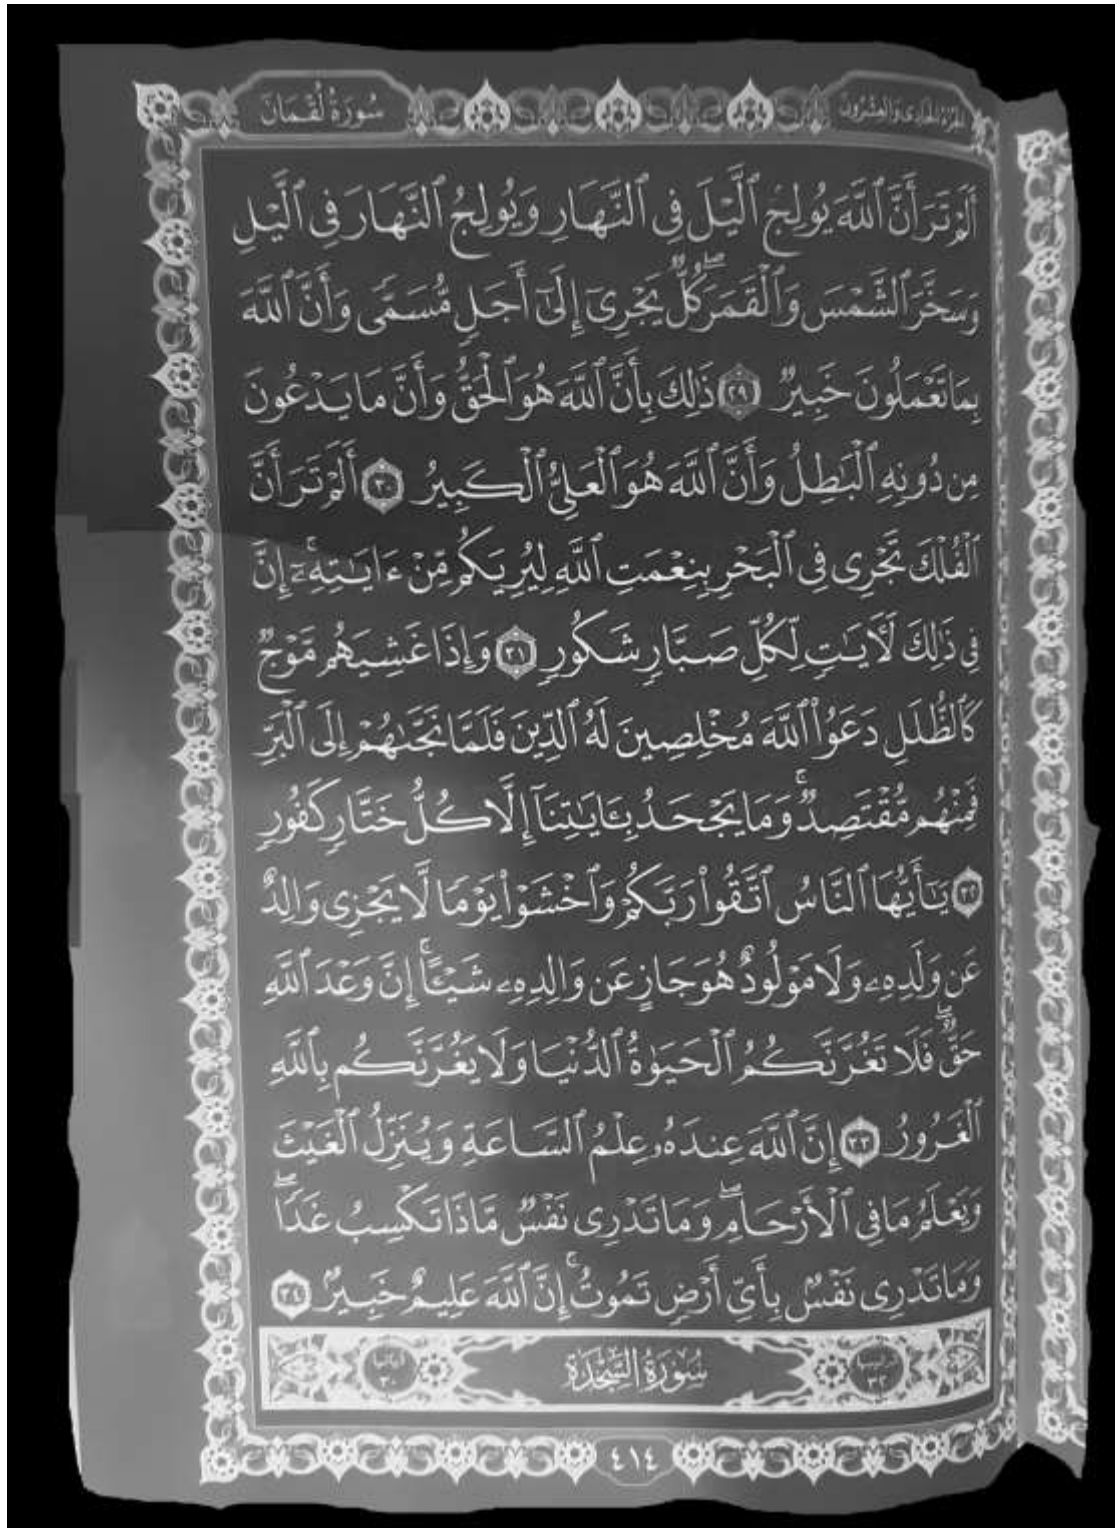 الجزء الحادي والعشرون
سُورَةُ لُقْمَانَ
أَلَمْ تَرَ أَنَّ ٱللَّهَ يُولِجُ ٱلَّيْلَ فِى ٱلنَّهَارِ وَيُولِجُ ٱلنَّهَارَ فِى ٱلَّيْلِ
وَسَخَّرَ ٱلشَّمْسَ وَٱلْقَمَرَۖ كُلٌّ يَجْرِىٓ إِلَىٰٓ أَجَلٍ مُّسَمًّى وَأَنَّ ٱللَّهَ
بِمَا تَعْمَلُونَ خَبِيرٌ ٢٩ ذَٰلِكَ بِأَنَّ ٱللَّهَ هُوَ ٱلْحَقُّ وَأَنَّ مَا يَدْعُونَ
مِن دُونِهِ ٱلْبَٰطِلُ وَأَنَّ ٱللَّهَ هُوَ ٱلْعَلِىُّ ٱلْكَبِيرُ ٣٠ أَلَمْ تَرَ أَنَّ
ٱلْفُلْكَ تَجْرِى فِى ٱلْبَحْرِ بِنِعْمَتِ ٱللَّهِ لِيُرِيَكُم مِّنْ ءَايَٰتِهِۦٓۚ إِنَّ
فِى ذَٰلِكَ لَءَايَٰتٍ لِّكُلِّ صَبَّارٍ شَكُورٍ ٣١ وَإِذَا غَشِيَهُم مَّوْجٌ
كَٱلظُّلَلِ دَعَوُا۟ ٱللَّهَ مُخْلِصِينَ لَهُ ٱلدِّينَ فَلَمَّا نَجَّىٰهُمْ إِلَى ٱلْبَرِّ
فَمِنْهُم مُّقْتَصِدٌۚ وَمَا يَجْحَدُ بِـَٔايَٰتِنَآ إِلَّا كُلُّ خَتَّارٍ كَفُورٍ
٣٢ يَٰٓأَيُّهَا ٱلنَّاسُ ٱتَّقُوا۟ رَبَّكُمْ وَٱخْشَوْا۟ يَوْمًا لَّا يَجْزِى وَالِدٌ
عَن وَلَدِهِۦ وَلَا مَوْلُودٌ هُوَ جَازٍ عَن وَالِدِهِۦ شَيْـًٔاۚ إِنَّ وَعْدَ ٱللَّهِ
حَقٌّۖ فَلَا تَغُرَّنَّكُمُ ٱلْحَيَوٰةُ ٱلدُّنْيَا وَلَا يَغُرَّنَّكُم بِٱللَّهِ
ٱلْغَرُورُ ٣٣ إِنَّ ٱللَّهَ عِندَهُۥ عِلْمُ ٱلسَّاعَةِ وَيُنَزِّلُ ٱلْغَيْثَ
وَيَعْلَمُ مَا فِى ٱلْأَرْحَامِۖ وَمَا تَدْرِى نَفْسٌ مَّاذَا تَكْسِبُ غَدًاۖ
وَمَا تَدْرِى نَفْسٌۢ بِأَىِّ أَرْضٍ تَمُوتُۚ إِنَّ ٱللَّهَ عَلِيمٌ خَبِيرٌۢ ٣٤
ترتيبها ٣٢
سُورَةُ السَّجْدَةِ
آياتها ٣٠
٤١٤